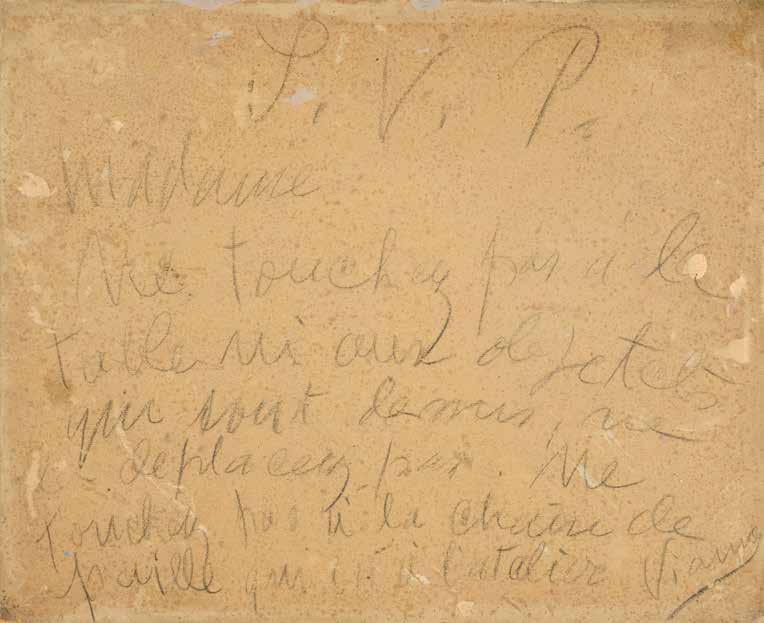 S. V. P.
Madame
Ne touchez pas à la
table ni aux objets
qui sont dessus, ne
déplacez pas. Ne
touchez pas à la chaise de
paille qui est à l'atelier